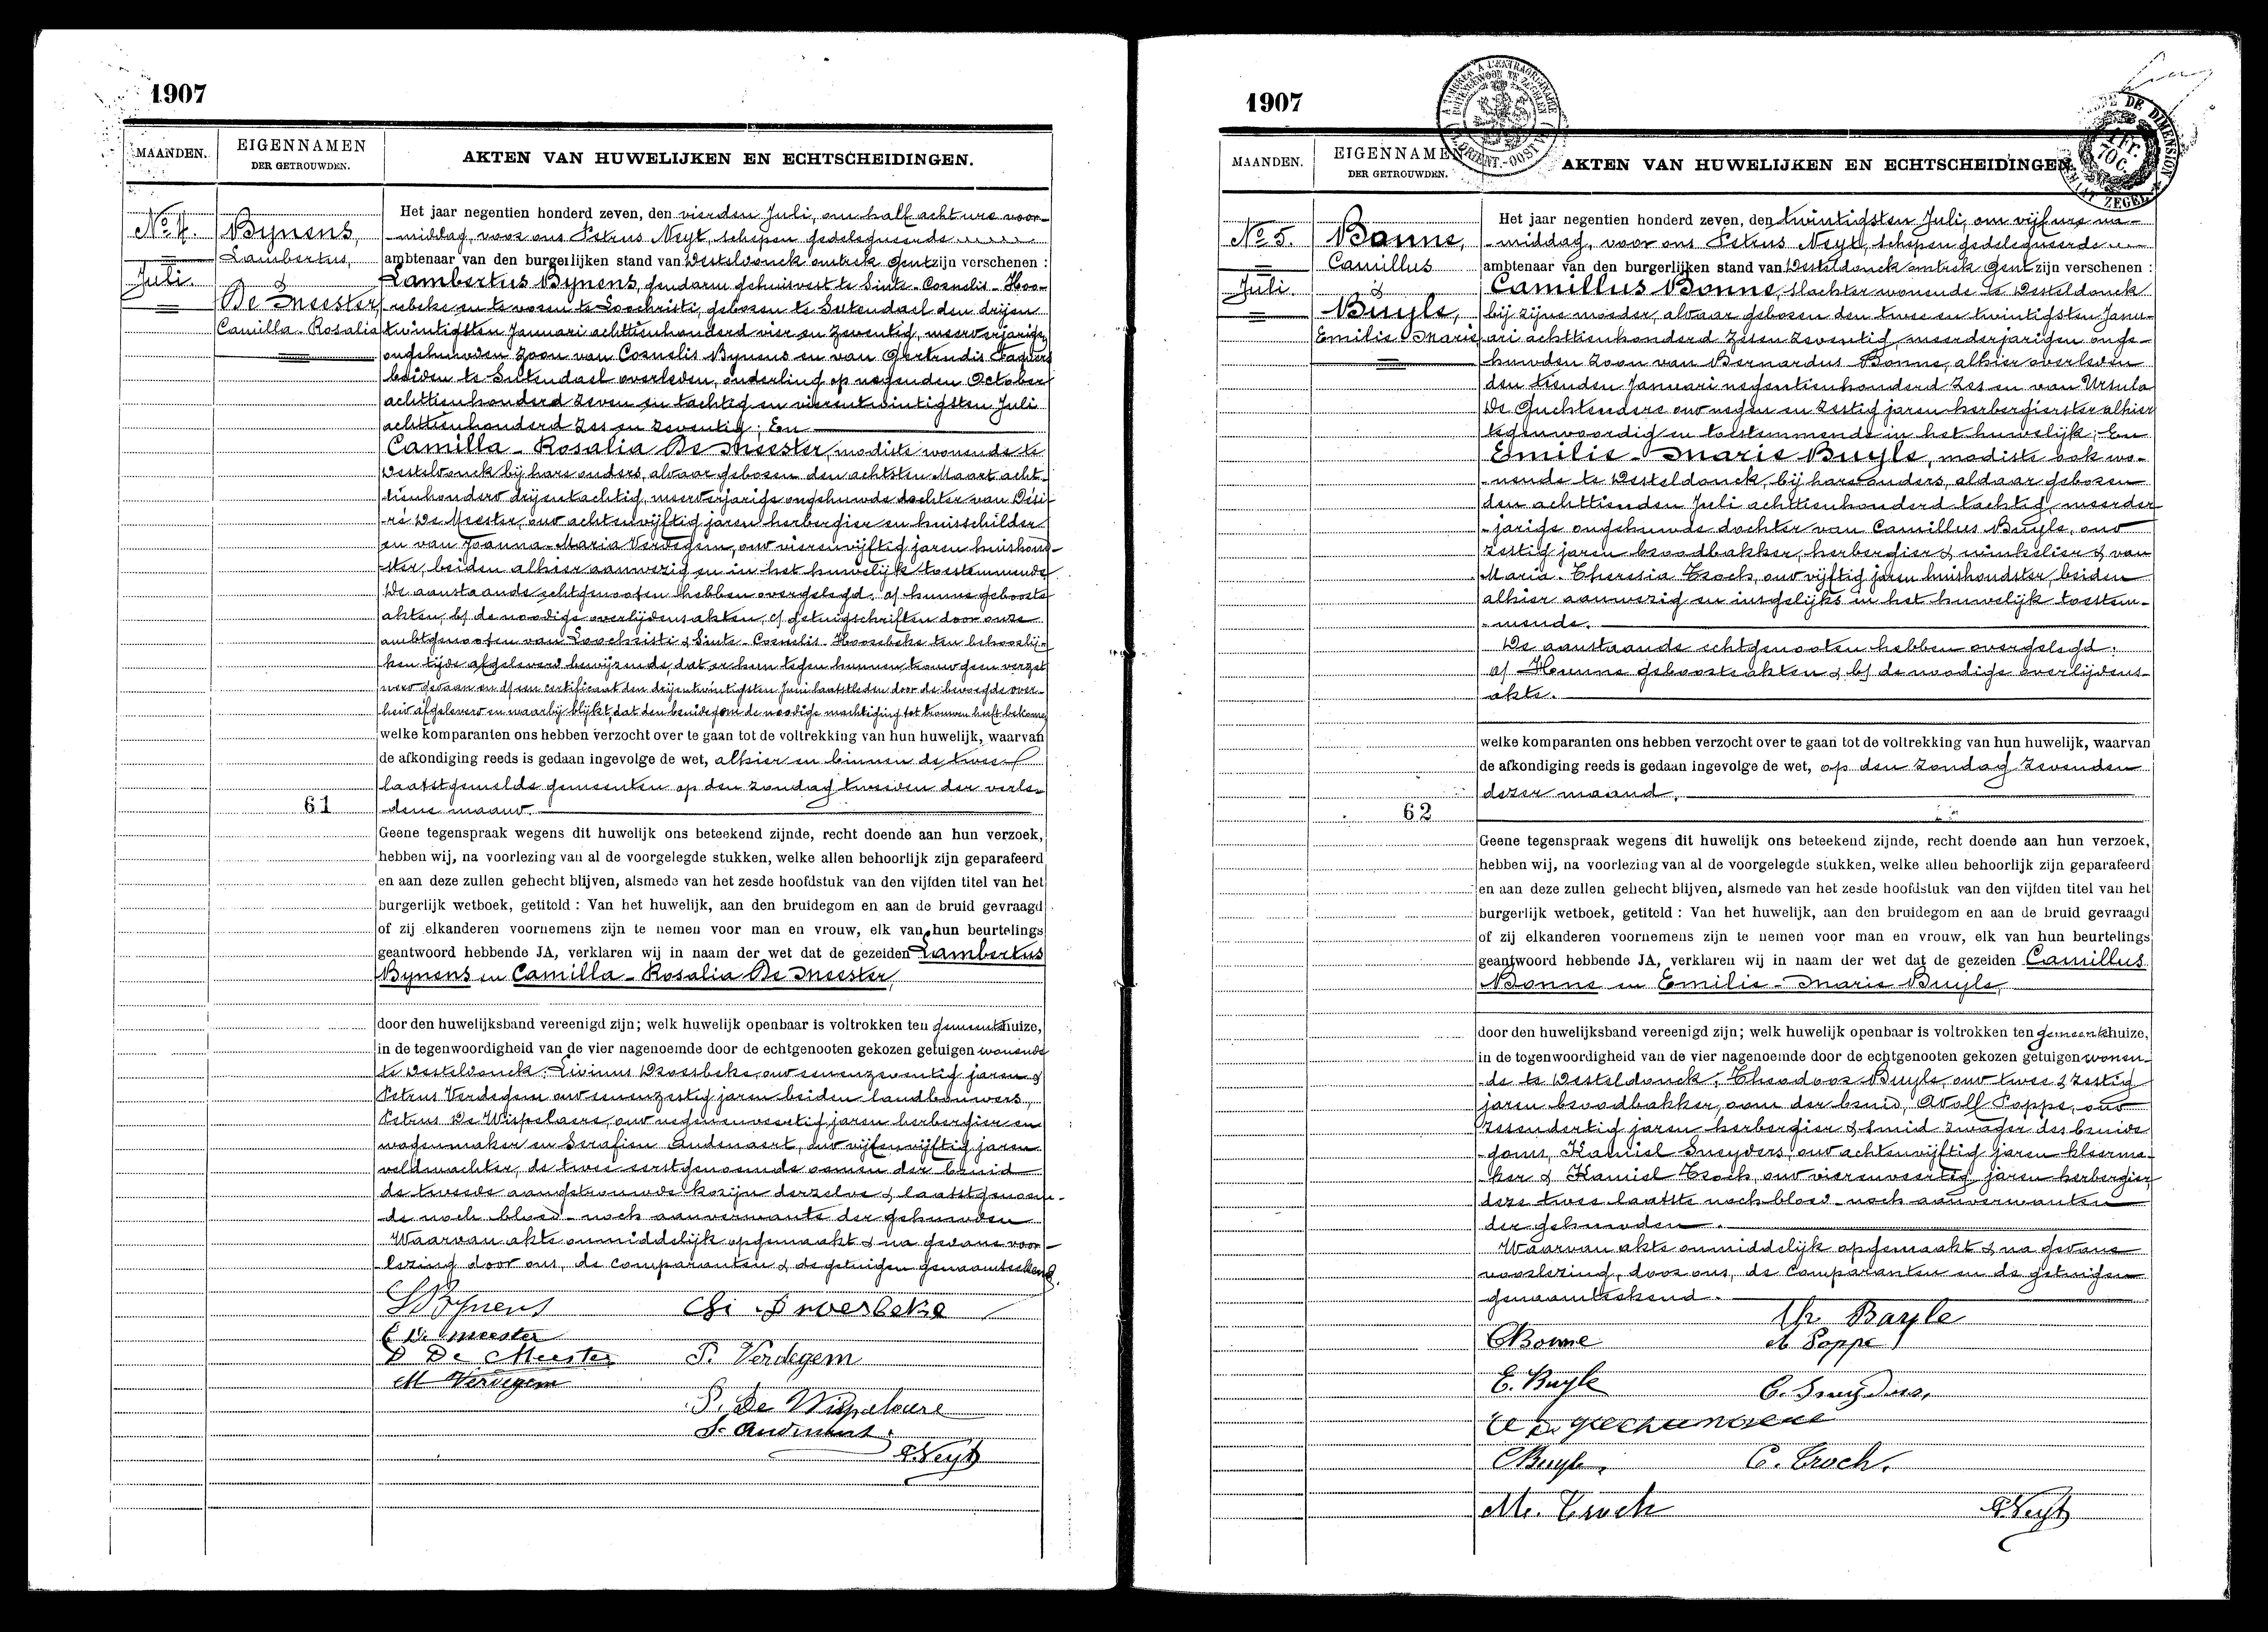 1907
MAANDEN.
EIGENNAMEN
DER GETROUWDEN.
AKTEN VAN HUWELIJKEN EN ECHTSCHEIDINGEN.
No 4.
Juli.
Bynens,
Lambertus,
&
De Meester,
Camilla-Rosalia
61
Het jaar negentien honderd zeven, den vierden Juli, om half acht ure voor-
-middag, voor ons Petrus Neyt, schepen gedelegueerde
ambtenaar van den burgerlijken stand van Desteldonck omtrek Gent zijn verschenen :
Lambertus Bynens, gendarm gehuisvest te Sinte-Cornelis-Hoo-
rebeke en te voren te Loochristi, geboren te Sutendael den drijen
twintigsten Januari achttienhonderd vier en zeventig, meerderjarige
ongehuwden zoon van Cornelis Bynens en van Gertrudis
beiden te Sutendael overleden, onderling op negenden October
achttienhonderd zeven en tachtig en vierentwintigsten Juli
achttienhonderd zes en zeventig; En
Camilla-Rosalia De Meester, modiste wonende te
Desteldonck bij hare ouders, alwaar geboren den achtsten Maart acht-
tienhonderd drijentachtig, meerderjarige ongehuwde dochter van Dési-
ré De Meester, oud achtenvijftig jaren herbergier en huisschilder
en van Joanna-Maria Verdegem, oud vierenvijftig jaren huishoud-
-ster, beiden alhier aanwezig en in het huwelijk toestemmende
De aanstaande echtgenooten hebben overgelegd: a) hunne geboorte
akten, b) de noodige overlijdensakten, c) getuigschriften door onze
ambtgenooten van Loochristi & Sinte-Cornelis-Hoorebeke ten behoorlij-
ken tijde afgeleverd bewijzende, dat er hun tegen hunnen trouw geen verzet
werd gedaan en d) een certificaat den drijentwintigsten Juni laatstleden door de bevoegde over-
heid afgeleverd en waarbij blijkt, dat den bruidegom de noodige machtiging tot trouwen heeft bekomen
welke komparanten ons hebben verzocht over te gaan tot de voltrekking van hun huwelijk, waarvan
de afkondiging reeds is gedaan ingevolge de wet, alhier en binnen de twee
laatstgemelde gemeenten op den zondag tweeden der verle-
dene maand.
Geene tegenspraak wegens dit huwelijk ons beteekend zijnde, recht doende aan hun verzoek,
hebben wij, na voorlezing van al de voorgelegde stukken, welke allen behoorlijk zijn geparafeerd
en aan deze zullen gehecht blijven, alsmede van het zesde hoofdstuk van den vijfden titel van het
burgerlijk wetboek, getiteld : Van het huwelijk, aan den bruidegom en aan de bruid gevraagd
of zij elkanderen voornemens zijn te nemen voor man en vrouw, elk van hun beurtelings
geantwoord hebbende JA, verklaren wij in naam der wet dat de gezeiden Lambertus
Bynens en Camilla-Rosalia De Meester,
door den huwelijksband vereenigd zijn; welk huwelijk openbaar is voltrokken ten gemeentehuize,
in de tegenwoordigheid van de vier nagenoemde door de echtgenooten gekozen getuigen wonende
te Desteldonck: Livinus Droesbeke oud eenenzeventig jaren &
Petrus Verdegem oud eenenzestig jaren beiden landbouwers,
Petrus De Wispelaere, oud negenenveertig jaren herbergier en
wagenmaker en Serafien Audenaert, oud vijfenvijftig jaren
veldwachter, de twee eerstgenoemde oomen der bruid
de tweede aangetrouwde kozijn derzelve & laatstgenoem-
de noch bloed- noch aanverwante der gehuwden
Waarvan akte onmiddelijk opgemaakt & na gedane voor-
lezing door ons, de comparanten & de getuigen genaamteekend.
LBynens
C De meester
D De Meester
M Verdegem
P. Verdegem
P. De Wispelaere
S. Audenaert.
PNeyt
1907
TIMBRE A L'EXTRAORDINAIRE
BUITENGEWOON TE ZEGELEN
DE DIMENSION
1 Fr.
70 C.
ZEGEL
MAANDEN.
EIGENNAMEN
DER GETROUWDEN.
AKTEN VAN HUWELIJKEN EN ECHTSCHEIDINGEN
No 5.
Juli.
Bonne,
Camillus
&
Buyle,
Emilie-Marie
62
Het jaar negentien honderd zeven, den twintigsten Juli, om vijf ure na-
-middag, voor ons Petrus Neyt, schepen gedelegueerde
ambtenaar van den burgerlijken stand van Desteldonck omtrek Gent zijn verschenen :
Camillus Bonne, slachter wonende te Desteldonck
bij zijne moeder, alwaar geboren den twee en twintigsten Janu-
ari achttienhonderd zesen zeventig, meerderjarigen onge-
huwden zoon van Bernardus Bonne, alhier overleden
den tienden Januari negentienhonderd zes en van Ursula
De Guchteneere oud negen en zestig jaren herbergierster alhier
tegenwoordig en toestemmende in het huwelijk; En
Emilie-Marie Buyle, modiste ook wo-
-nende te Desteldonck, bij hare ouders, aldaar geboren
den achttienden Juli achttienhonderd tachtig, meerder
-jarige ongehuwde dochter van Camillus Buyle, oud
zestig jaren broodbakker, herbergier & winkelier & van
Maria-Theresia Troch, oud vijftig jaren huishoudster, beiden
alhier aanwezig en insgelijks in het huwelijk toestem-
-mende.
De aanstaande echtgenooten hebben overgelegd:
a) Hunne geboorteakten & b) de noodige overlijdens-
akte.
welke komparanten ons hebben verzocht over te gaan tot de voltrekking van hun huwelijk, waarvan
de afkondiging reeds is gedaan ingevolge de wet, op den zondag zevenden
dezer maand.
Geene tegenspraak wegens dit huwelijk ons beteekend zijnde, recht doende aan hun verzoek,
hebben wij, na voorlezing van al de voorgelegde stukken, welke allen behoorlijk zijn geparafeerd
en aan deze zullen gehecht blijven, alsmede van het zesde hoofdstuk van den vijfden titel van het
burgerlijk wetboek, getiteld : Van het huwelijk, aan den bruidegom en aan de bruid gevraagd
of zij elkanderen voornemens zijn te nemen voor man en vrouw, elk van hun beurtelings
geantwoord hebbende JA, verklaren wij in naam der wet dat de gezeiden Camillus
Bonne en Emilie-Marie Buyle,
door den huwelijksband vereenigd zijn; welk huwelijk openbaar is voltrokken ten gemeentehuize,
in de tegenwoordigheid van de vier nagenoemde door de echtgenooten gekozen getuigen wonen-
-de te Desteldonck: Theodoor Buyle, oud twee & zestig
jaren broodbakker, oom der bruid, Adolf Poppe, oud
zesendertig jaren herbergier & smid zwager des bruide
-goms, Kamiel Sneyders, oud achtenvijftig jaren kleerma-
ker & Kamiel Troch, oud vierenveertig jaren herbergier,
deze twee laatste noch bloed- noch aanverwanten
der gehuwden.
Waarvan akte onmiddelijk opgemaakt & na gedane
voorlezing, door ons, de Comparanten en de getuigen
genaamteekend.
Th. Buyle
CBonne
A Poppe
E. Buyle
C. Sneyders,
CBuyle.
C. Troch.
M. Troch
PNeyt